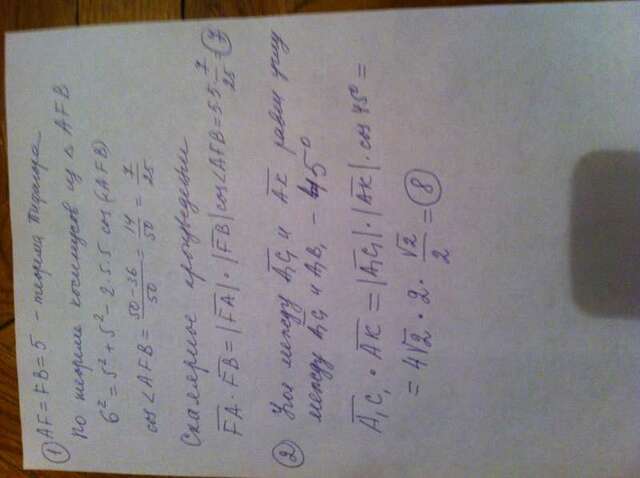 ① AF = FB = 5 - теорема Пифагора
По теореме косинусов из △ AFB
6² = 5² + 5² - 2·5·5 cos(∠AFB)
cos∠AFB = (50-36)/50 = 14/50 = 7/25
Скалярное произведение
FA · FB = |FA| · |FB| cos∠AFB = 5·5·7/25 = 7
② Угол между A₁C₁ и AK равен углу
между A₁C₁ и A₁B₁ - 45°
A₁C₁ · AK = |A₁C₁| · |AK| · cos 45° =
= 4√2 · 2 · √2/2 = 8